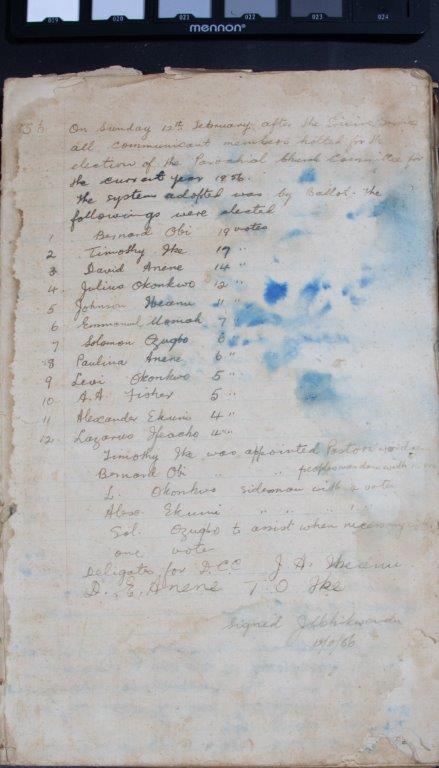 019 020 021 022 023 024
mennon
On Sunday 12th February after the Divine
all communicant members halted for the
election of the Parochial Church Committee for
the current year 1956.
the system adopted was by Ballot. the
followings were elected
1 Bernard Obi 19 votes
2 Timothy Ike 17 "
3 David Anene 14 "
4. Julius Okonkwo 12 "
5 Johnson Ibeanu 11 "
6 Emmanuel Momah 7 "
7 Solomon Ozugbo 6 "
8 Paulina Anene 6 "
9 Levi Okonkwo 5 "
10 A.A. Fisher 5 "
11 Alexander Ekumi 4 "
12. Lazarus Ifeacho "
Timothy Ike was appointed Pastors
Bernard Obi " " peopleswarden with
L. Okonkwo sidesman with a vote
Alex. Ekumi " " " "
Sol. Ozugbo to assist when necessary
one vote
Deligate for D.C.C J. A. Ibeanu
D. E. Anene T. O Ike
Signed